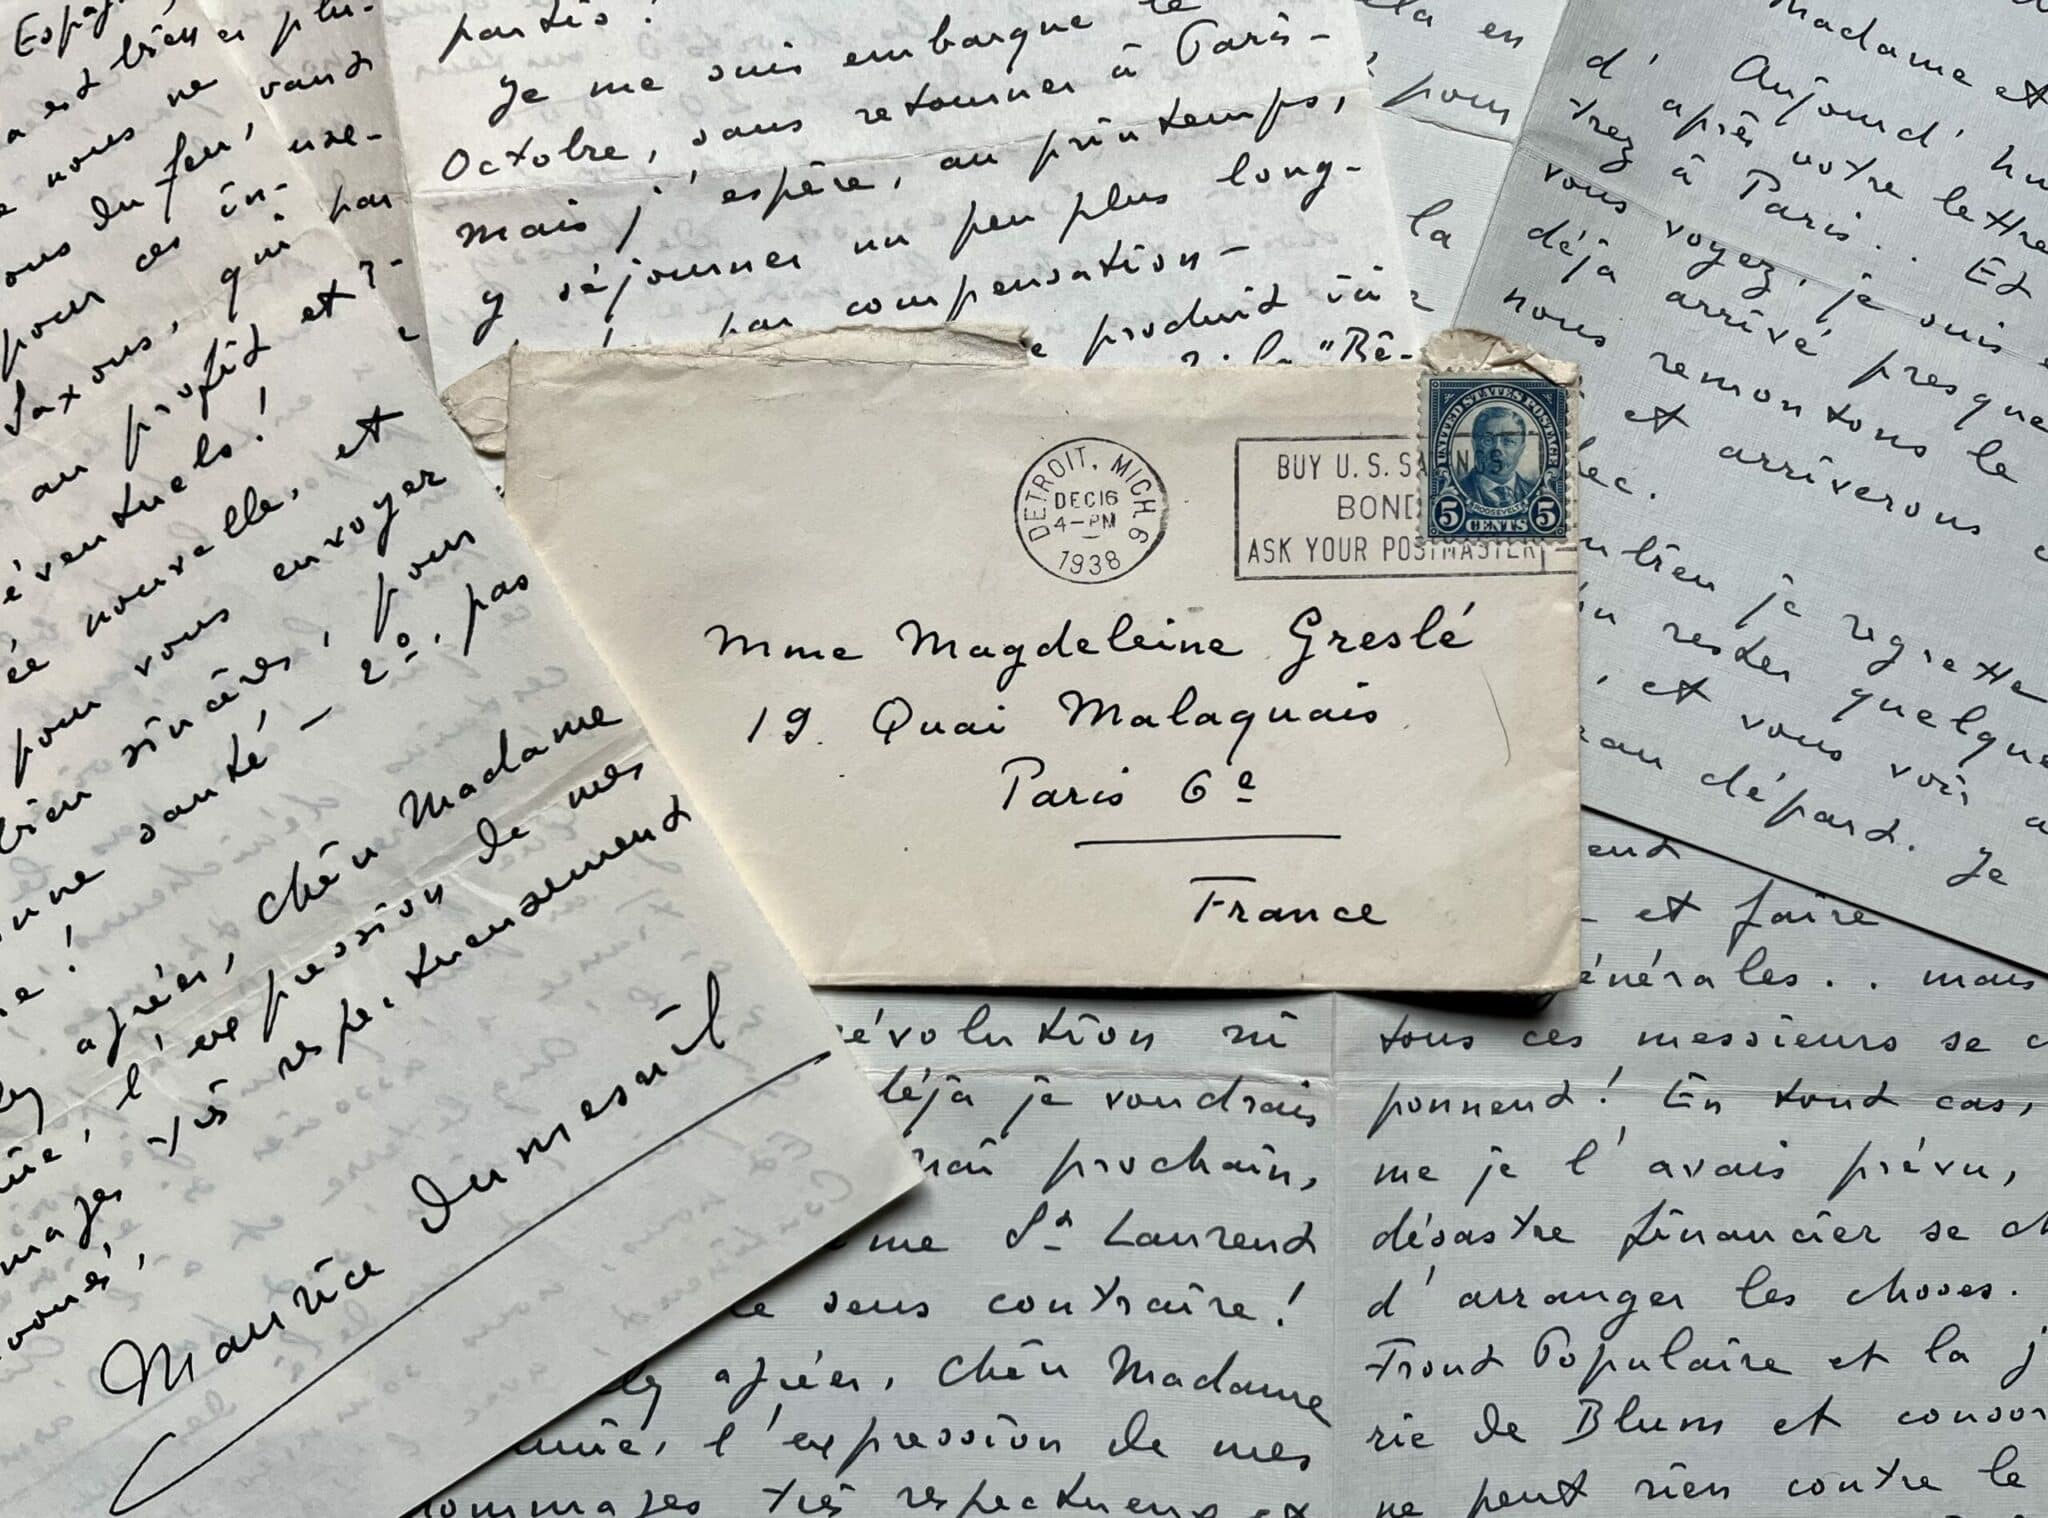 Espag
a est bien
e nous ne
ous du feu,
pour ces in-
Saxons, qui
au profit et
éventuels!
ée nouvelle, et
pour vous envoyer
bien sincères, pour
nne santé — 2º, pas
e!
agréer, chèr Madame
l'expression de mes
très respectueusement
Maurice Dumesnil
er plu-
vant
use-
par
partis!
Je me suis embarqué le
Octobre, sans retourner à Paris -
Mais j'espère, au printemps,
y séjourner un peu plus long-
par compensation -
e produit via
"Bê-
la en
pour
la
Madame et
d'Aujourd'hu
d'après votre lettre
trez à Paris. Et
vous voyez, je suis
déjà arrivé presque
nous remontons le
et arriverons
bec.
ntien je regrette
rester quelque
, et vous voir a
eau départ. Je
DETROIT, MICH. 9
DEC 16
4-PM
1938
BUY U.S. SAVINGS
BONDS
ASK YOUR POSTMASTER
UNITED STATES POSTAGE
ROOSEVELT
5 CENTS 5
Mme Magdeleine Greslé
19. Quai Malaquais
Paris 6e
France
évolution ni
déjà je voudrais
mai prochain,
me St Laurent
le sens contraire!
agréer, chèr Madame
l'expression de mes
hommages très respectueux et
ent
- et faire
énérales... mais
tous ces messieurs se c
ponnent! En tout cas,
me je l'avais prévu,
désastre financier se ch
d'arranger les choses.
Front Populaire et la j
rie de Blum et consor
ne peut rien contre le